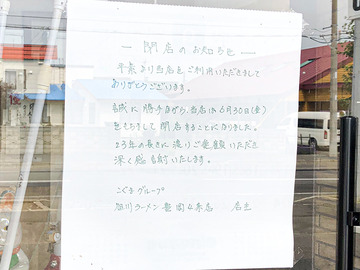 ― 閉店のお知らせ ―
平素より当店をご利用いただきまして
ありがとうございます。
誠に勝手ながら、当店は6月30日(金)
をもちまして閉店することになりました。
23年の長きに渡りご愛顧いただき
深く感謝いたします。
こぐまグループ
旭川ラーメン 豊岡4条店 店主